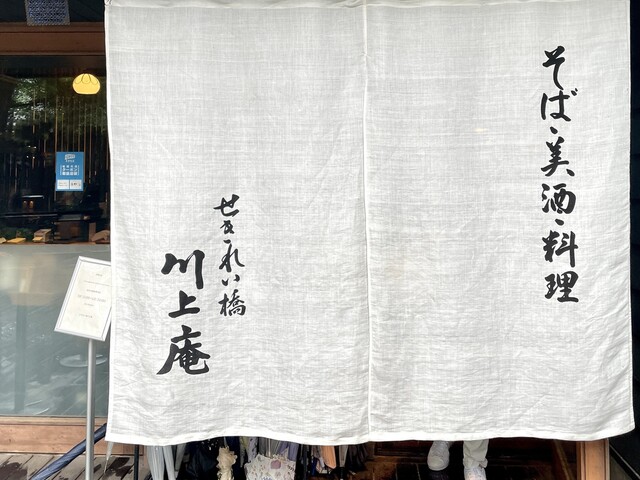 そば・美酒・料理
せきれい橋
川上庵